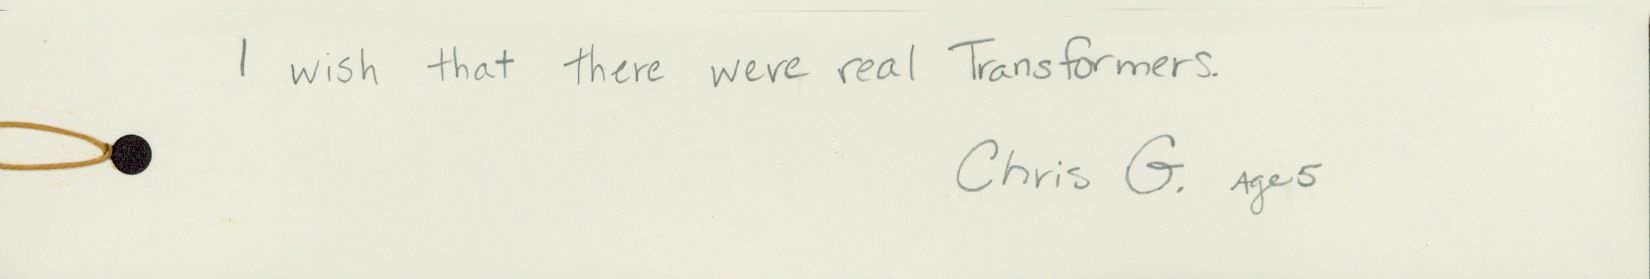 I wish that there were real Transformers.
Chris G. Age 5